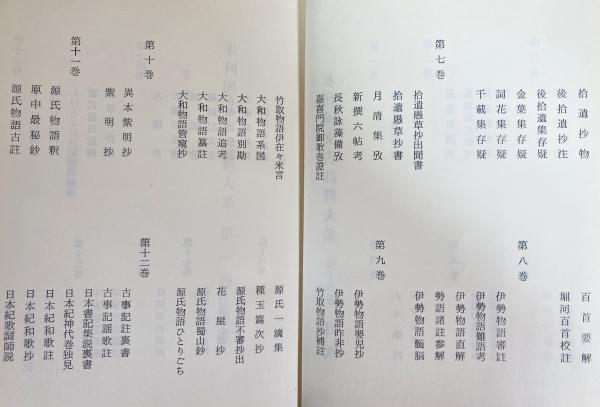 拾遺抄物
後拾遺抄注
後拾遺集存疑
金葉集存疑
詞花集存疑
千載集存疑
第七巻
拾遺愚草抄出聞書
拾遺愚草抄書
月清集攷
新撰六帖考
長秋詠藻備攷
嘉喜門院御歌巻證註
百首要解
堀河百首校註
第八巻
伊勢物語審註
伊勢物語難語考
伊勢物語直解
勢語諸註参解
伊勢物語髄脳
第九巻
伊勢物語嬰児抄
伊勢物語昨非抄
竹取物語抄補註
竹取物語伊在々米言
大和物語系図
大和物語別勘
大和物語追考
大和物語纂註
大和物語管窺抄
第十巻
異本紫明抄
紫明抄
第十一巻
源氏物語釈
原中最秘鈔
源氏物語古註
源氏一滴集
種玉篇次抄
源氏物語不審抄出
花屋抄
源氏物語蜀山鈔
源氏物語ひとりごち
第十二巻
古事記註裏書
古事記謡歌註
日本書記集説裏書
日本紀神代巻独見
日本紀和歌註
日本紀和歌抄
日本紀歌詞師説